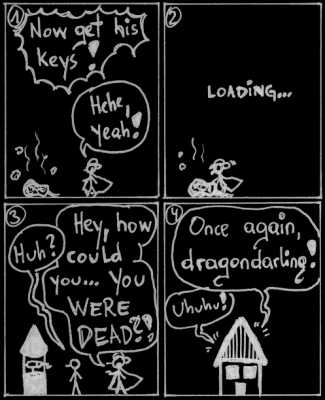 1
Now get his
keys!
Hehe,
yeah!
2
LOADING...
3
Huh?
Hey, how
could
you... you
WERE
DEAD?!
4
Once again,
dragondarling!
Uhuhu!